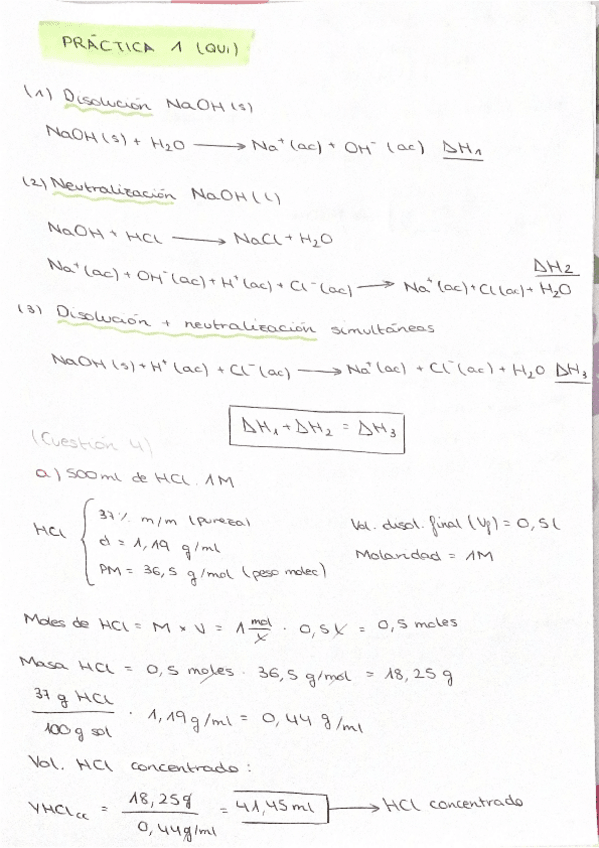 PRÁCTICA 1 (QUI)
(1) Disolución NaOH (s)
NaOH (s) + H₂O ⟶ Na⁺ (ac) + OH⁻ (ac) ΔH₁
(2) Neutralización NaOH (l)
NaOH + HCl ⟶ NaCl + H₂O
ΔH₂
Na⁺ (ac) + OH⁻ (ac) + H⁺ (ac) + Cl⁻ (ac) ⟶ Na⁺ (ac) + Cl (ac) + H₂O
(3) Disolución + neutralización simultáneas
NaOH (s) + H⁺ (ac) + Cl⁻ (ac) ⟶ Na⁺ (ac) + Cl⁻ (ac) + H₂O ΔH₃
ΔH₁ + ΔH₂ = ΔH₃
(Cuestión 4)
a) 500 ml de HCl. 1M
HCl { 37% m/m (pureza)
d = 1,19 g/ml
PM = 36,5 g/mol (peso molec)
Vol. disol. final (Vf) = 0,5 l
Molaridad = 1M
Moles de HCl = M × V = 1 mol/l · 0,5 l = 0,5 moles
Masa HCl = 0,5 moles · 36,5 g/mol = 18,25 g
37 g HCl / 100 g sol · 1,19 g/ml = 0,44 g/ml
Vol. HCl concentrado :
VHCl cc = 18,25 g / 0,44 g/ml = 41,45 ml ⟶ HCl concentrado